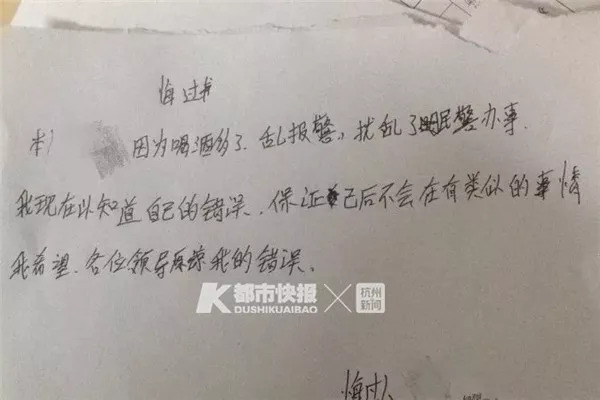 悔过书
本人 因为喝酒多了.乱报警,扰乱了民警办事.
我现在以知道自己的错误、保证已后不会在有类似的事情
我希望.各位领导原谅我的错误、
K都市快报
DUSHIKUAIBAO
杭州
新闻
悔过人